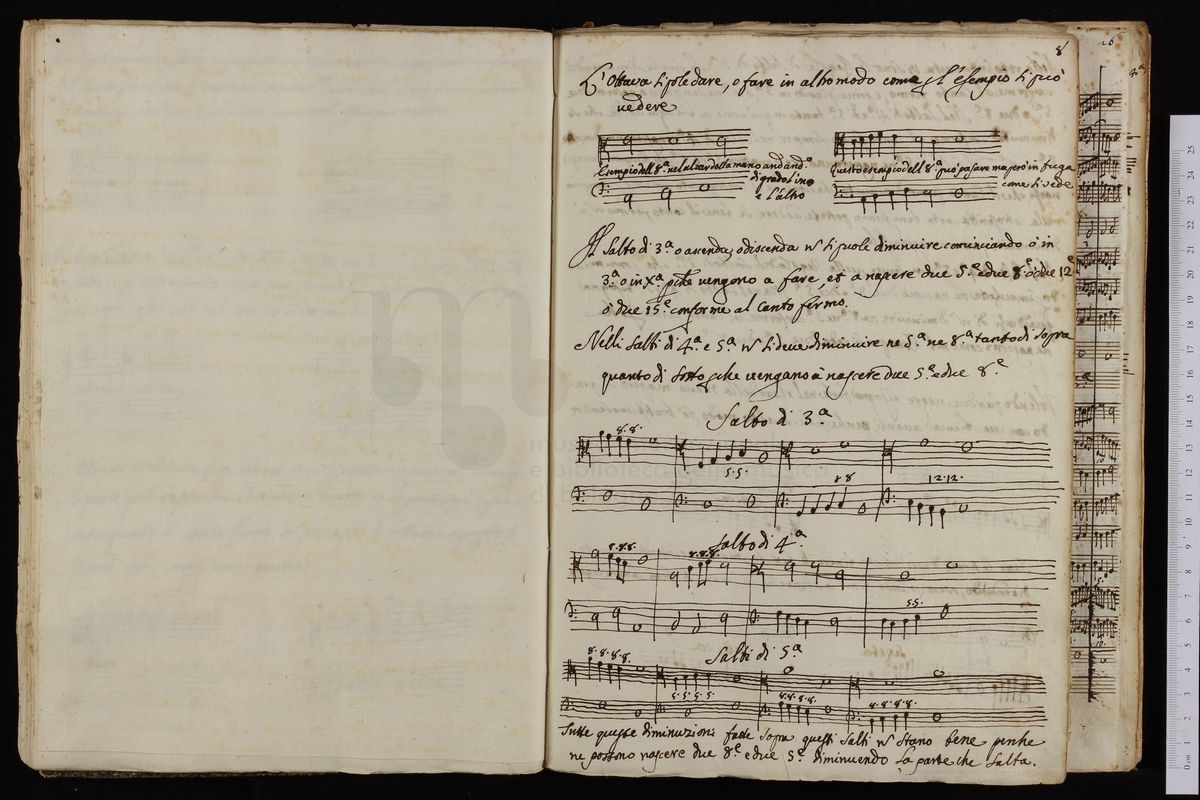 8
L'Ottava si suole dare, o fare in altro modo come l'esempio si può
vedere
Esempio dell'8.ª nel alzar della mano andando
di grado l'uno
e l'altro
Questo esempio dell'8.ª può passare ma però in fuga
come si vede
Il Salto di 3.ª o ascenda, o discenda non si puole diminuire cominciando ò in
3.ª o in X.ª perche vengono a fare, et a nascere due 5.e e due 8.e ò due 12.e
ò due 15.e conforme al Canto fermo.
Nelli Salti di 4.ª e 5.ª non si deve diminuire ne 5.ª ne 8.ª tanto di sopra
quanto di sotto perche vengano à nascere due 5.e e due 8.e
Salto di 3.ª
8. 8.
5. 5
8 8
12. 12.
Salto di 4.ª
8. 8. 8.
8. 8. 8.
5 5.
Salti di 5.ª
8. 8. 8. 8.
5. 5. 5. 5.
8. 8. 8. 8.
8. 8. 8. 8.
Tutte queste diminuzioni fatte sopra questi salti non stano bene perche
ne possono nascere due 8.e e due 5.e diminuendo la parte che salta.